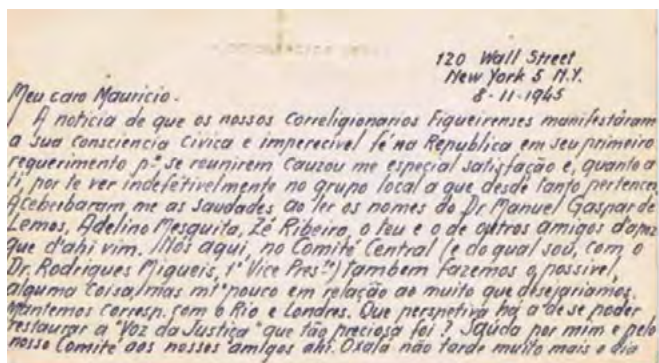 120 Wall Street
New York 5 N.Y.
8-11-1945
Meu caro Mauricio.
A noticia de que os nossos Correligionarios Figueirenses manifestáram
a sua Consciencia Civica e imperecivel fé na Republica em seu primeiro
requerimento p.ª se reunirem Cauzou me especial satisfação e, quanto a
ti, por te ver indefétivelmente no grupo local a que desde tanto pertences
Acebeibaram me as Saudades, ao ler os nomes do Dr Manuel Gaspar de
Lemos, Adelino Mesquita, Zé Ribeiro, o teu e o de outros amigos
que d'ahi vim. Nós aqui, no Comité Central (e do qual sou, com o
Dr. Rodrigues Migueis, 1º Vice Pres.te) tambem fazemos o possivel,
alguma Coisa, mas mtº pouco em relação ao muito que desejariamos.
Mantemos Corresp. Com o Rio e Londres. Que perspetiva ha d'a de se poder
restaurar a "Voz da Justiça" que tão preciosa foi? Saúda por mim e pelo
nosso Comité aos nossos amigos ahi. Oxalá não tarde muito mais o dia